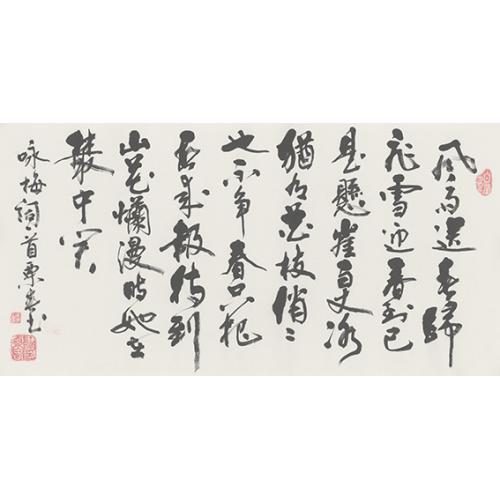 风雨送春歸
飛雪迎春到已
是懸崖百丈冰
猶有花枝俏〻
也不争春只把
春来報待到
山花爛漫時她在
叢中笑
咏梅詞一首 书